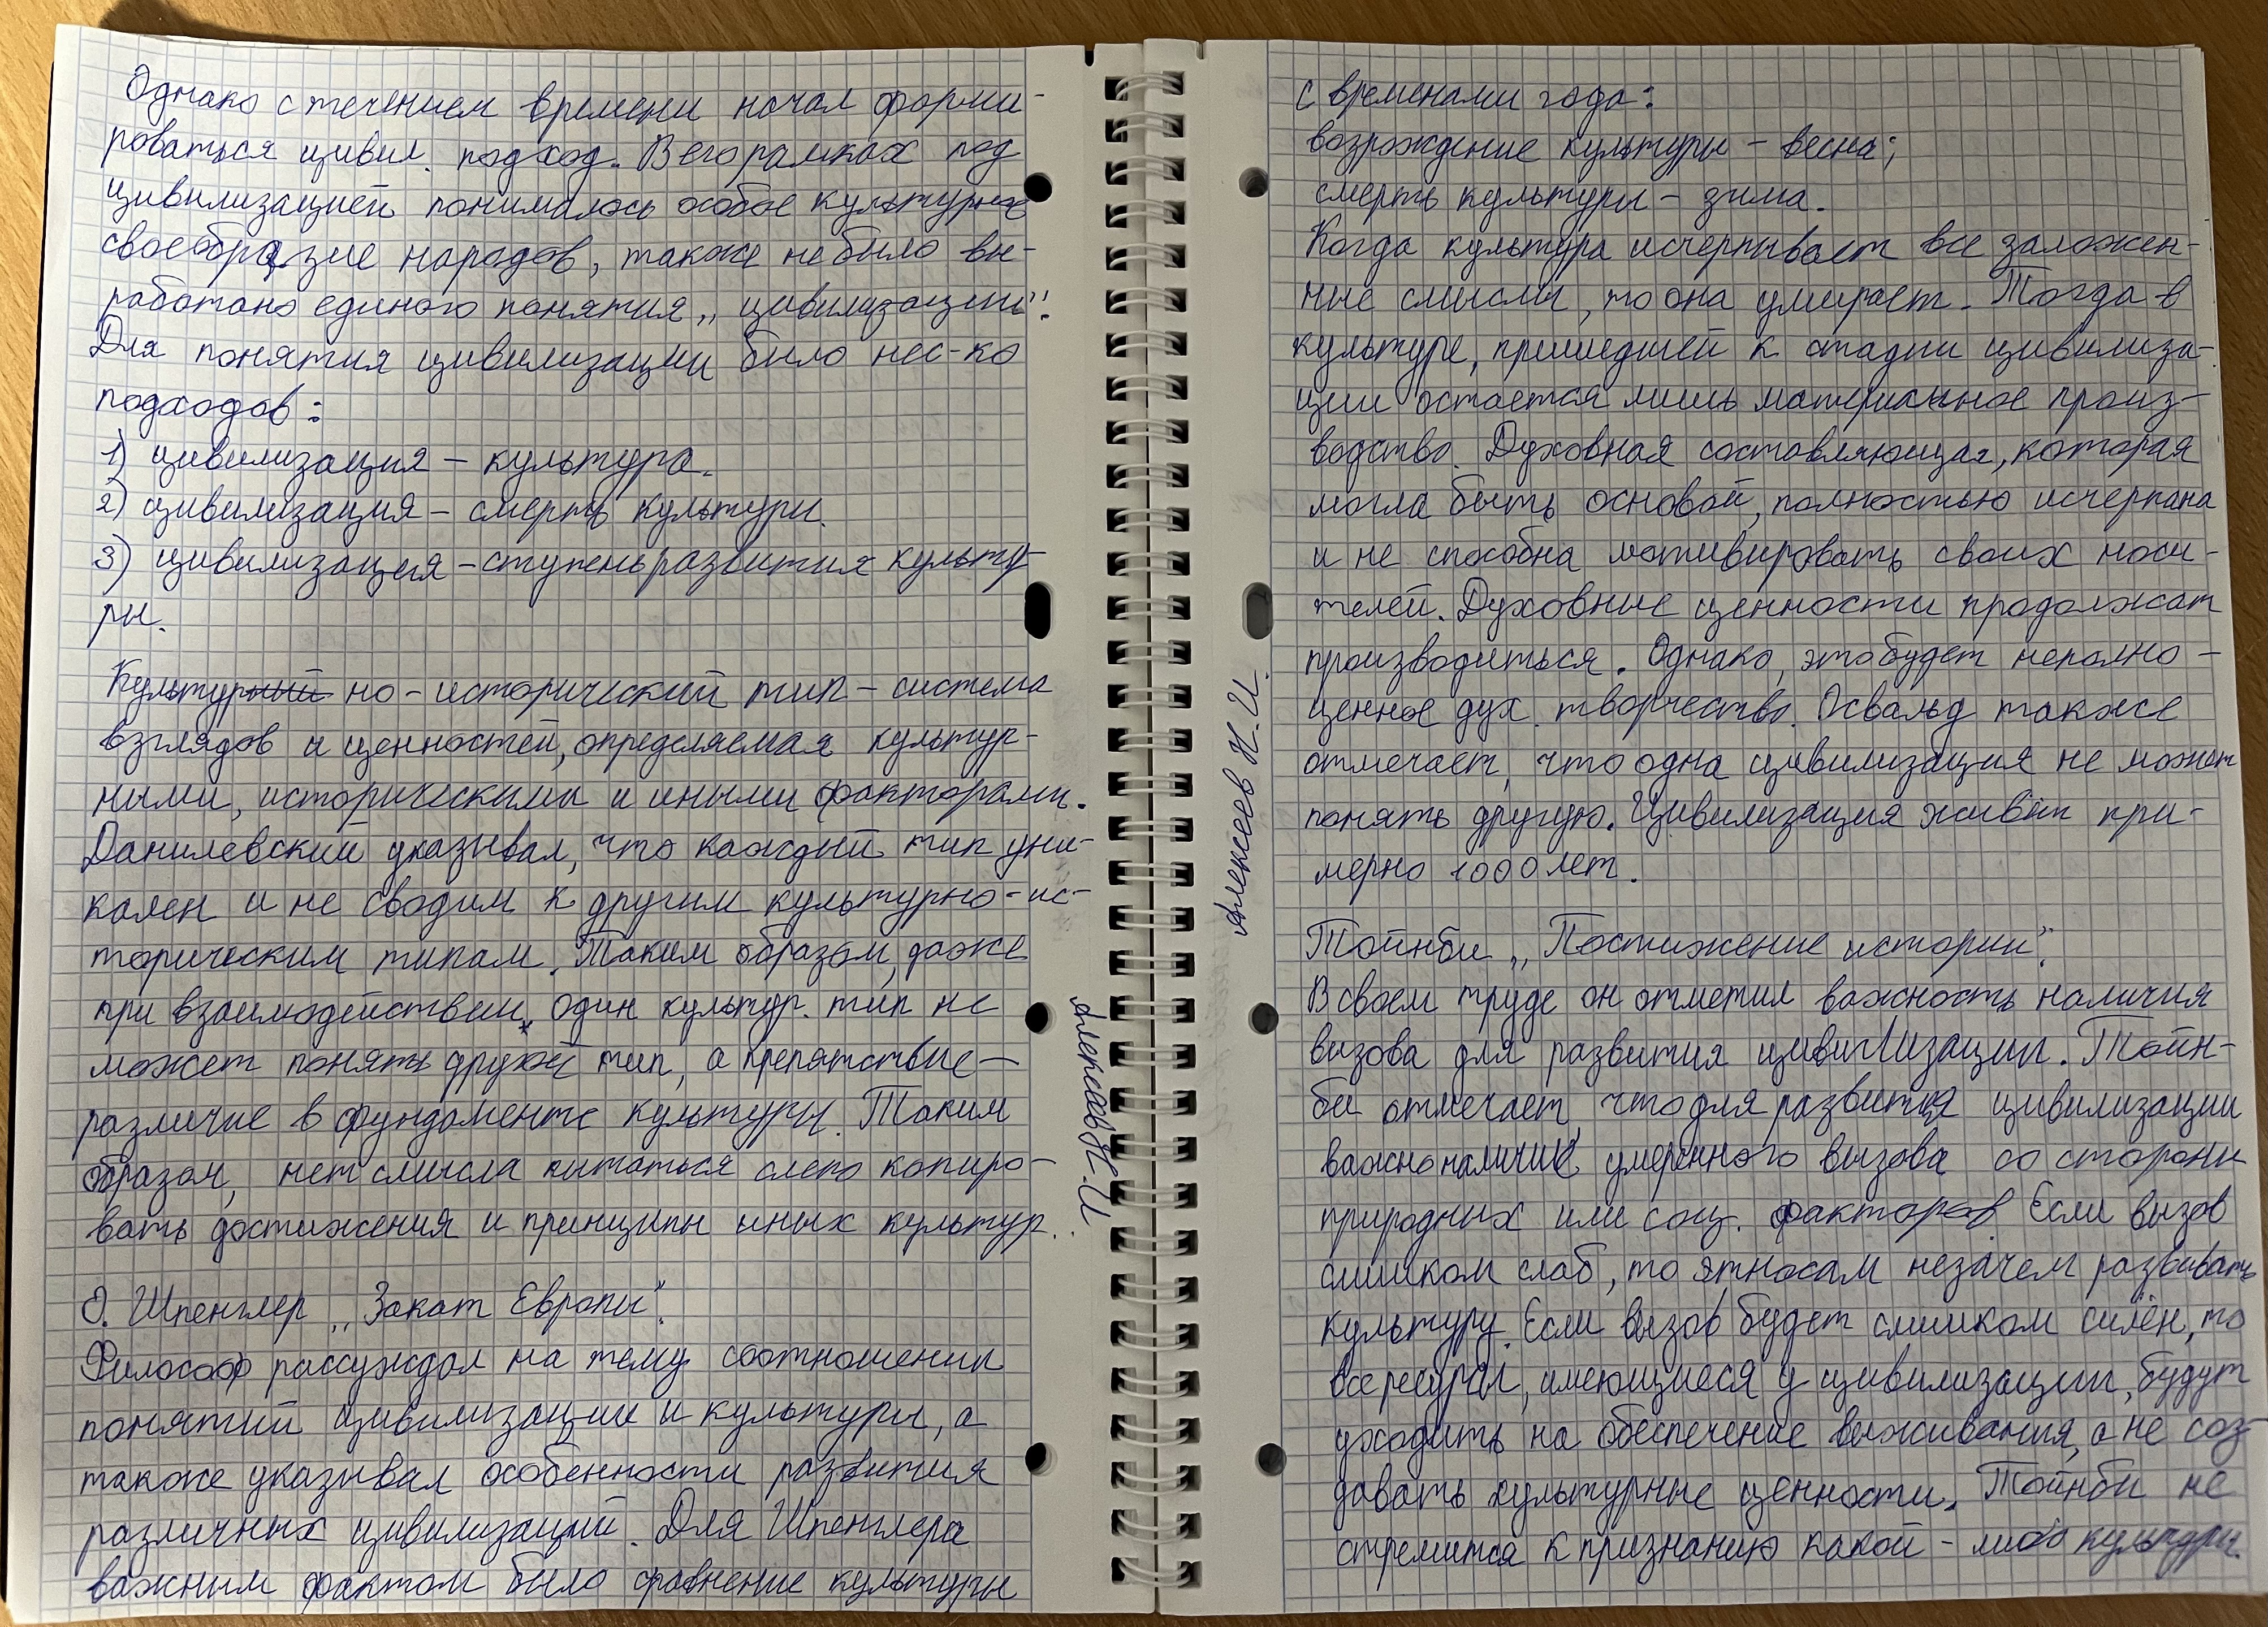 Однако с течением времени начал форми-
роваться цивил. подход. В его рамках под
цивилизацией понималось особое культурное
своеобразие народов, также не было вы-
работано единого понятия „цивилизации".
Для понятия цивилизации было нес-ко
подходов:
1) цивилизация - культура.
2) цивилизация - смерть культуры.
3) цивилизация - ступень развития культу-
ры.
Культурный но-исторический тип - система
взглядов и ценностей, определяемая культур-
ными, историческими и иными факторами.
Данилевский указывал, что каждый тип уни-
кален и не сводим к другим культурно-ис-
торическим типам. Таким образом, даже
при взаимодействии, один культур. тип не
может понять другой тип, а препятствие -
различие в фундаменте культуры. Таким
образом, нет смысла пытаться слепо копиро-
вать достижения и принципы иных культур.
О. Шпенглер „Закат Европы".
Философ рассуждал на тему соотношении
понятий цивилизации и культуры, а
также указывал особенности развития
различных цивилизаций. Для Шпенглера
важным фактом было сравнение культуры
Алексеев Н.И
с временами года:
возрождение культуры - весна;
смерть культуры - зима.
Когда культура исчерпывает все заложен-
ные смыслы, то она умирает. Тогда в
культуре, пришедшей к стадии цивилиза-
ции остается лишь материальное произ-
водство. Духовная составляющая, которая
могла быть основой, полностью исчерпана
и не способна мотивировать своих носи-
телей. Духовные ценности продолжат
производиться. Однако, это будет неполно-
ценное дух. творчество. Освальд также
отмечает, что одна цивилизация не может
понять другую. Цивилизация живёт при-
мерно 1000 лет.
Тойнби „Постижение истории".
В своем труде он отметил важность наличия
вызова для развития цивилизации. Тойн-
би отмечает, что для развития цивилизации
важно наличие умеренного вызова со стороны
природных или соц. факторов. Если вызов
слишком слаб, то этносам незачем развивать
культуру. Если вызов будет слишком силён, то
все ресурсы, имеющиеся у цивилизации, будут
уходить на обеспечение выживания, а не соз-
давать культурные ценности. Тойнби не
стремится к признанию какой-либо культуры.
Алексеев Н.И.